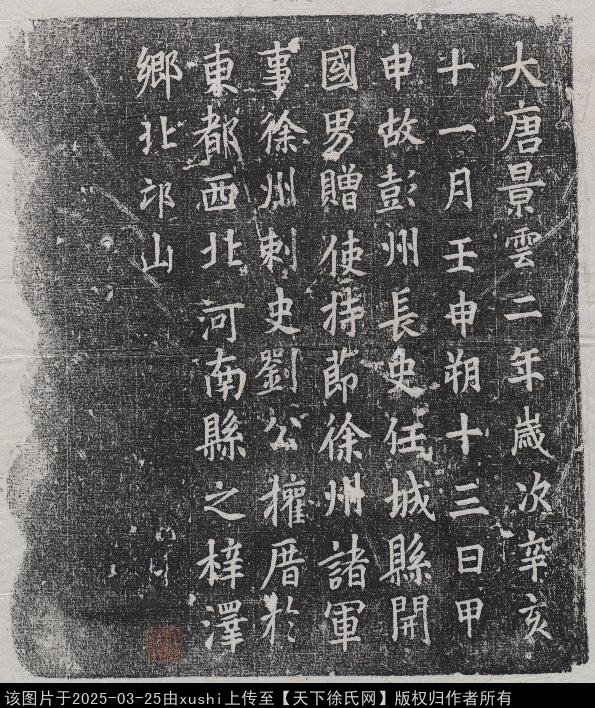 大唐景雲二年歲次辛亥
十一月壬申朔十三日甲
申故彭州長史任城縣開
國男贈使持節徐州諸軍
事徐州刺史劉公權厝於
東都西北河南縣之梓澤
鄉北邙山
该图片于2025-03-25由xushi上传至【天下徐氏网】版权归作者所有